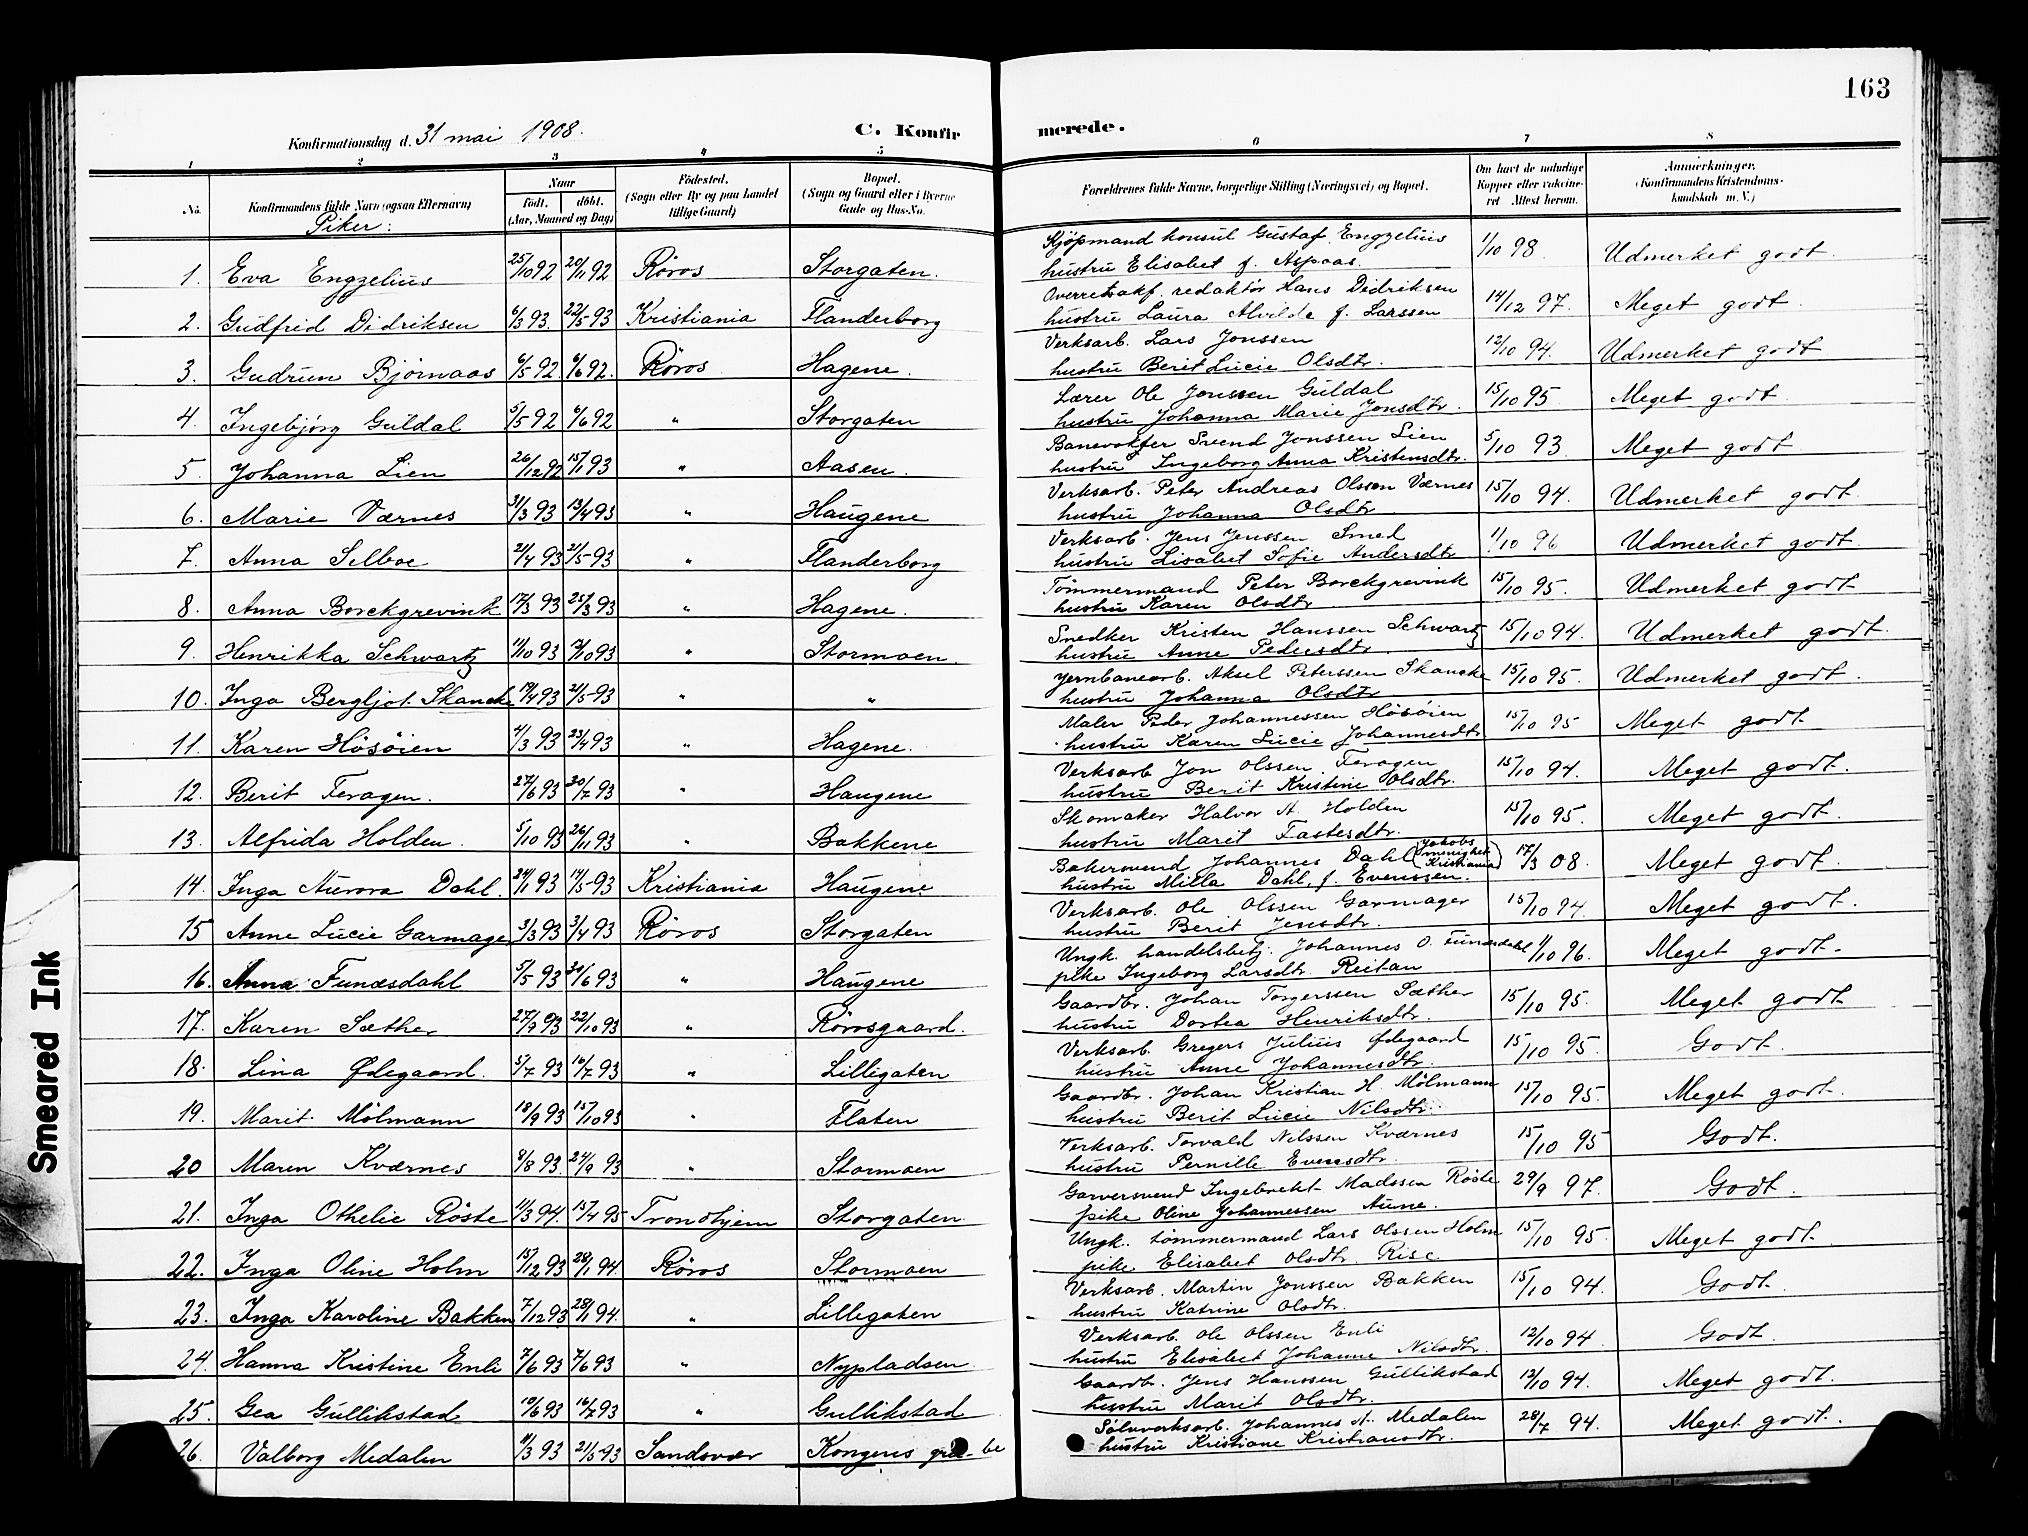 163
Konfirmationsdag d. 31 mai 1908.
C. Konfirmerede.
1 2 3 4 5 6 7 8
No. Konfirmandens fulde Navn (ogsaa Efternavn) Naar født. døbt. (Aar, Maaned og Dag) Fødested. (Sogn eller By og paa Landet tillige Gaard) Bopæl. (Sogn og Gaard eller i Byerne Gade og Hus-No. Forældrenes fulde Navne, borgerlige Stilling (Næringsvei) og Bopæl. Om havt de naturlige Kopper eller vakcineret Attest herom. Anmerkninger. (Konfirmandens Kristendomskundskab m. V.)
Piker:
1. Eva Engzelius 25/10 92 20/11 92 Röros Storgaten. Kjøpmand konsul Gustaf Engzelius 1/10 98 Udmerket godt.
hustru Elisabet f. Aspaas.
2. Gudfrid Didriksen 6/3 93. 22/5 93 Kristiania Flanderborg Overretssakf. redaktør Hans Didriksen 14/12 97. Meget godt.
hustru Laura Alvilde f. Larssen
3. Gudrun Bjørnaas 6/5 92 6/6 92. Röros Hagene. Verksarb. Lars Jonssen 12/10 94. Udmerket godt
hustru Berit Lucie Olsdtr.
4. Ingebjörg Guldal 5/5 92 6/6 92 " Storgaten Lærer Ole Jonssen Guldal 15/10 95. Meget godt
hustru Johanna Marie Jonsdtr.
5. Johanna Lien 26/12 92 15/1 93 " Aasen. Banevokter Svend Jonssen Lien 5/10 93 Meget godt
hustru Ingeborg Anna Kristensdtr.
6. Marie Værnes 31/3 93 13/4 93 " Haugene Verksarb. Peter Andreas Olssen Værnes 15/10 94. Udmerket godt
hustru Johanna Olsdtr
7. Anna Selboe 2/4 93 21/5 93 " Flanderborg Verksarb. Jens Jenssen Smed 11/10 96 Udmerket godt.
hustru Lisabet Sofie Andersdtr
8. Anna Borckgrevink 17/3 93 25/3 93 " Hagene. Tømmermand Peter Borckgrevink 15/10 95. Udmerket godt
hustru Karen Olsdtr
9. Henrikka Schwartz 11/10 93 17/10 93 " Stormoen. Snedker Kristen Hanssen Schwartz 15/10 94. Udmerket godt.
hustru Anne Pedersdtr.
10. Inga Bergljot Skancke 17/4 93 21/5 93 " " Jernbanearb. Aksel Peterssen Skancke 15/10 95. Udmerket godt.
hustru Johanna Olsdtr
11. Karen Hösöien 4/3 93 23/4 93 " Hagene. Maler Peder Johannessen Hösöien 15/10 95 Meget godt
hustru Karen Lucie Johannesdtr
12. Berit Feragen. 27/6 93 30/7 93 " Haugene Verksarb. Jon Olssen Feragen 15/10 94. Meget godt.
hustru Berit Kristine Olsdtr.
13. Alfrida Holden. 5/10 93 26/11 93 " Bakkene Skomaker Halvor A. Holden 15/10 95. Meget godt.
hustru Marit Fastesdtr.
14. Inga Aurora Dahl. 24/1 93 14/5 93 Kristiania Haugene Bakersvend Johannes Dahl (Jakobs menighet Kristiania) 17/3 08. Meget godt.
hustru Milla Dahl, f. Evenssen.
15 Anne Lucie Garmager 3/3 93 3/4 93 Röros Storgaten Verksarb. Ole Olssen Garmager 15/10 94. Meget godt.
hustru Berit Jensdtr.
16. Anna Funæsdahl 5/5 93 30/6 93 " Haugene Ungk. handelsbetj. Johannes O. Funæsdahl 1/10 96. Meget godt.
pike Ingeborg Larsdtr. Reitan
17. Karen Sæther 27/9 93 22/10 93 " Rörosgaard. Gaardbr. Johan Torgerssen Sæther 15/10 95. Meget godt.
hustru Dortea Henriksdtr.
18. Lina Ødegaard. 5/7 93 16/7 93 " Lilligaten Verksarb. Gregers Julius Ødegaard 15/10 95. Godt.
hustru Anne Johannesdtr.
19. Marit Mölmann 18/9 93 15/10 93 " Flaten Gaardbr. Johan Kristian H. Mölmann 15/10 95. Meget godt.
hustru Berit Lucie Nilsdtr.
20 Maren Kværnes 8/8 93. 24/9 93 " Stormoen Verksarb. Torvald Nilssen Kværnes 15/10 95 Godt.
hustru Pernille Evensdtr.
21. Inga Othelie Röste 11/3 94. 15/4 95 Trondhjem Storgaten Garversvend Ingebrekt Madssen Röste 29/9 97. Godt.
pike Oline Johannessen Aune.
22. Inga Oline Holm 15/12 93 28/1 94. Röros Stormoen Ungk. tømmermand Lars Olssen Holm 15/10 95. Meget godt.
pike Elisabet Olsdtr. Rise
23. Inga Karoline Bakken 7/12 93 28/1 94. " Lillegaten Verksarb. Martin Jonssen Bakken 15/10 94. Godt.
hustru Katrine Olsdtr.
24. Hanna Kristine Enli 7/6 93 7/6 93 " Nypladsen Verksarb. Ole Olssen Enli 12/10 94. Godt.
hustru Elisabet Johanne Nilsdtr.
25. Gea Gullikstad 10/6 93 16/7 93 " Gullikstad Gaardbr. Jens Hanssen Gullikstad 12/10 94. Meget godt.
hustru Marit Olsdtr.
26. Valborg Medalen 11/3 93 21/5 93 Sandsvær Kongens grube Sølvverksarb. Johannes A. Medalen 28/7 94. Meget godt.
hustru Kristiane Kristiansdtr.
Smeared Ink